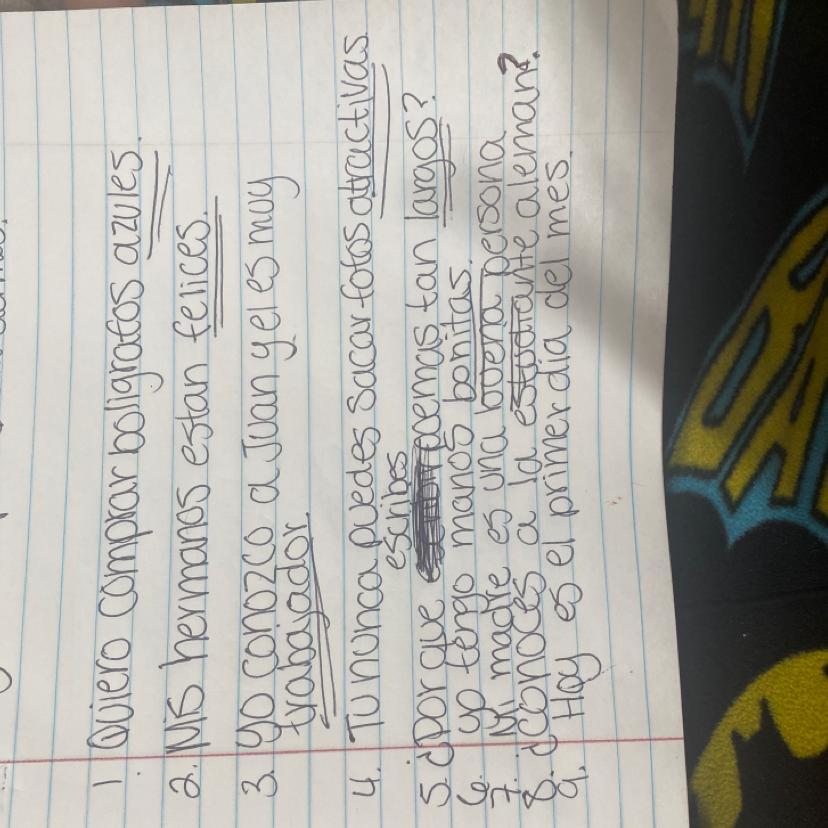 1. Quiero comprar boligrafos azules.
2. Mis hermanos estan felices.
3. Yo conozco a Juan y el es muy
trabajador.
4. Tu nunca puedes sacar fotos atractivas
escribes
5. ¿Por que poemas tan largos?
6. yo tengo manos bonitas.
7. Mi madre es una buena persona
8. ¿conoces a la estudiante aleman?
9. Hoy es el primer dia del mes.